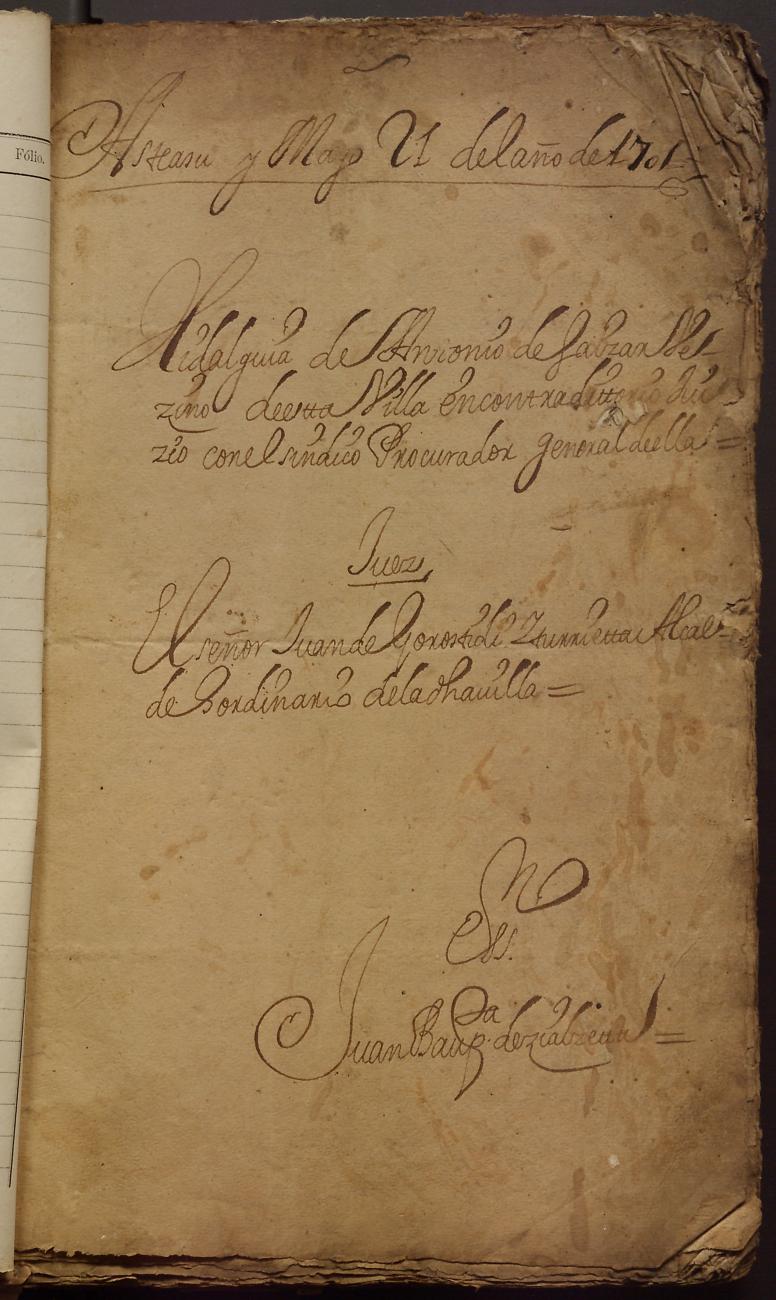 Fólio.
Asteasu y Mayo 21 del año de 1701
Hidalguia de Antonio de Gabzar Ve-
zino deesta Villa encontradittorio Jui
zio conel sindico Procurador general deella =
Juez
El señor Juan de Gorostidi Yturrietta Alcal
de hordinario dela dha villa =
Ess.
Juan Baup.ta de